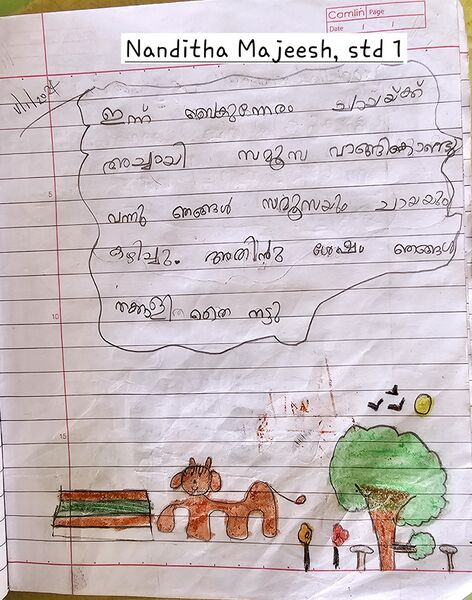 Camlin Page
Date / /
Nanditha Majeesh, std 1
ഇന്ന് വൈകുന്നേരം ചായയ്ക്ക്
അച്ചായി സമൂസ വാങ്ങിക്കൊണ്ടു
വന്നു ഞങ്ങൾ സമൂസയും ചായയും
കഴിച്ചു. അതിന്റു ശേഷം ഞങ്ങൾ
തക്കാളി തൈ നട്ടു
5
10
15